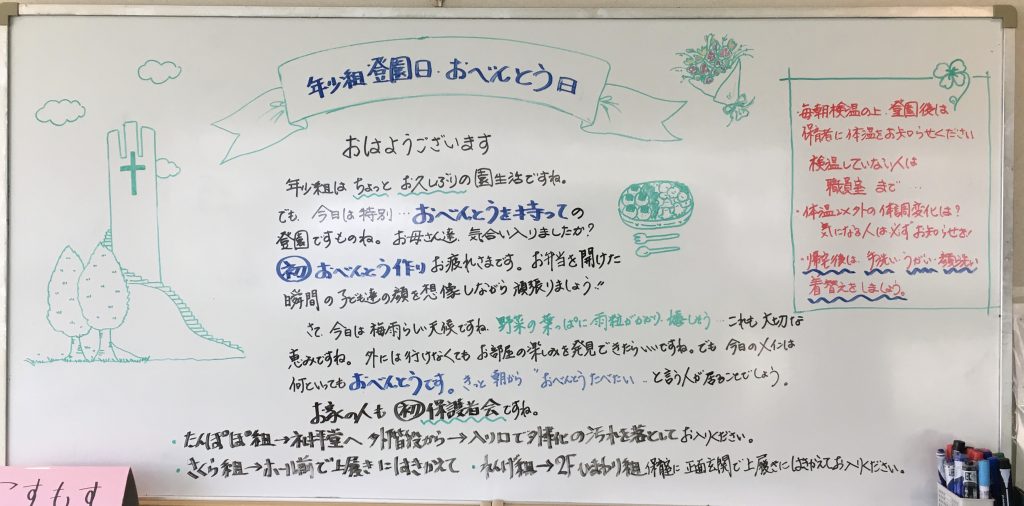 年少組登園日・おべんとう日
おはようございます
年少組は ちょっと お久しぶりの園生活ですね。
でも、今日は特別… おべんとうを持っての
登園ですものね。お母さん達、気合い入りましたか?
初 おべんとう作り お疲れさまです。お弁当を開けた
瞬間の子ども達の顔を想像しながら 頑張りましょう!!
さて、今日は梅雨らしい天候ですね。野菜の葉っぱに雨粒がかかり、嬉しそう…これも大切な
恵みですね。外には行けなくてもお部屋の楽しみを発見できたらいいですね。でも今日のメインは
何といっても おべんとうです。きっと朝から "おべんとうたべたい… と言う人が居ることでしょう。
お家の人も 初 保護者会ですね。
・たんぽぽ組→礼拝堂へ 外階段から→入り口で外靴の汚れを落としてお入りください。
・さくら組→ホール前で上履きにはきかえて ・れんげ組→2F ひまわり組保育室に正面玄関で上履きにはきかえてお入りください。
・毎朝検温の上、登園後は
保育者に体温をお知らせください
検温していない人は
職員室 まで…
・体温以外の体調変化は?
気になる人は必ずお知らせを!
・帰宅後は、手洗い・うがい・顔洗い
着替えをしましょう。
こすもす